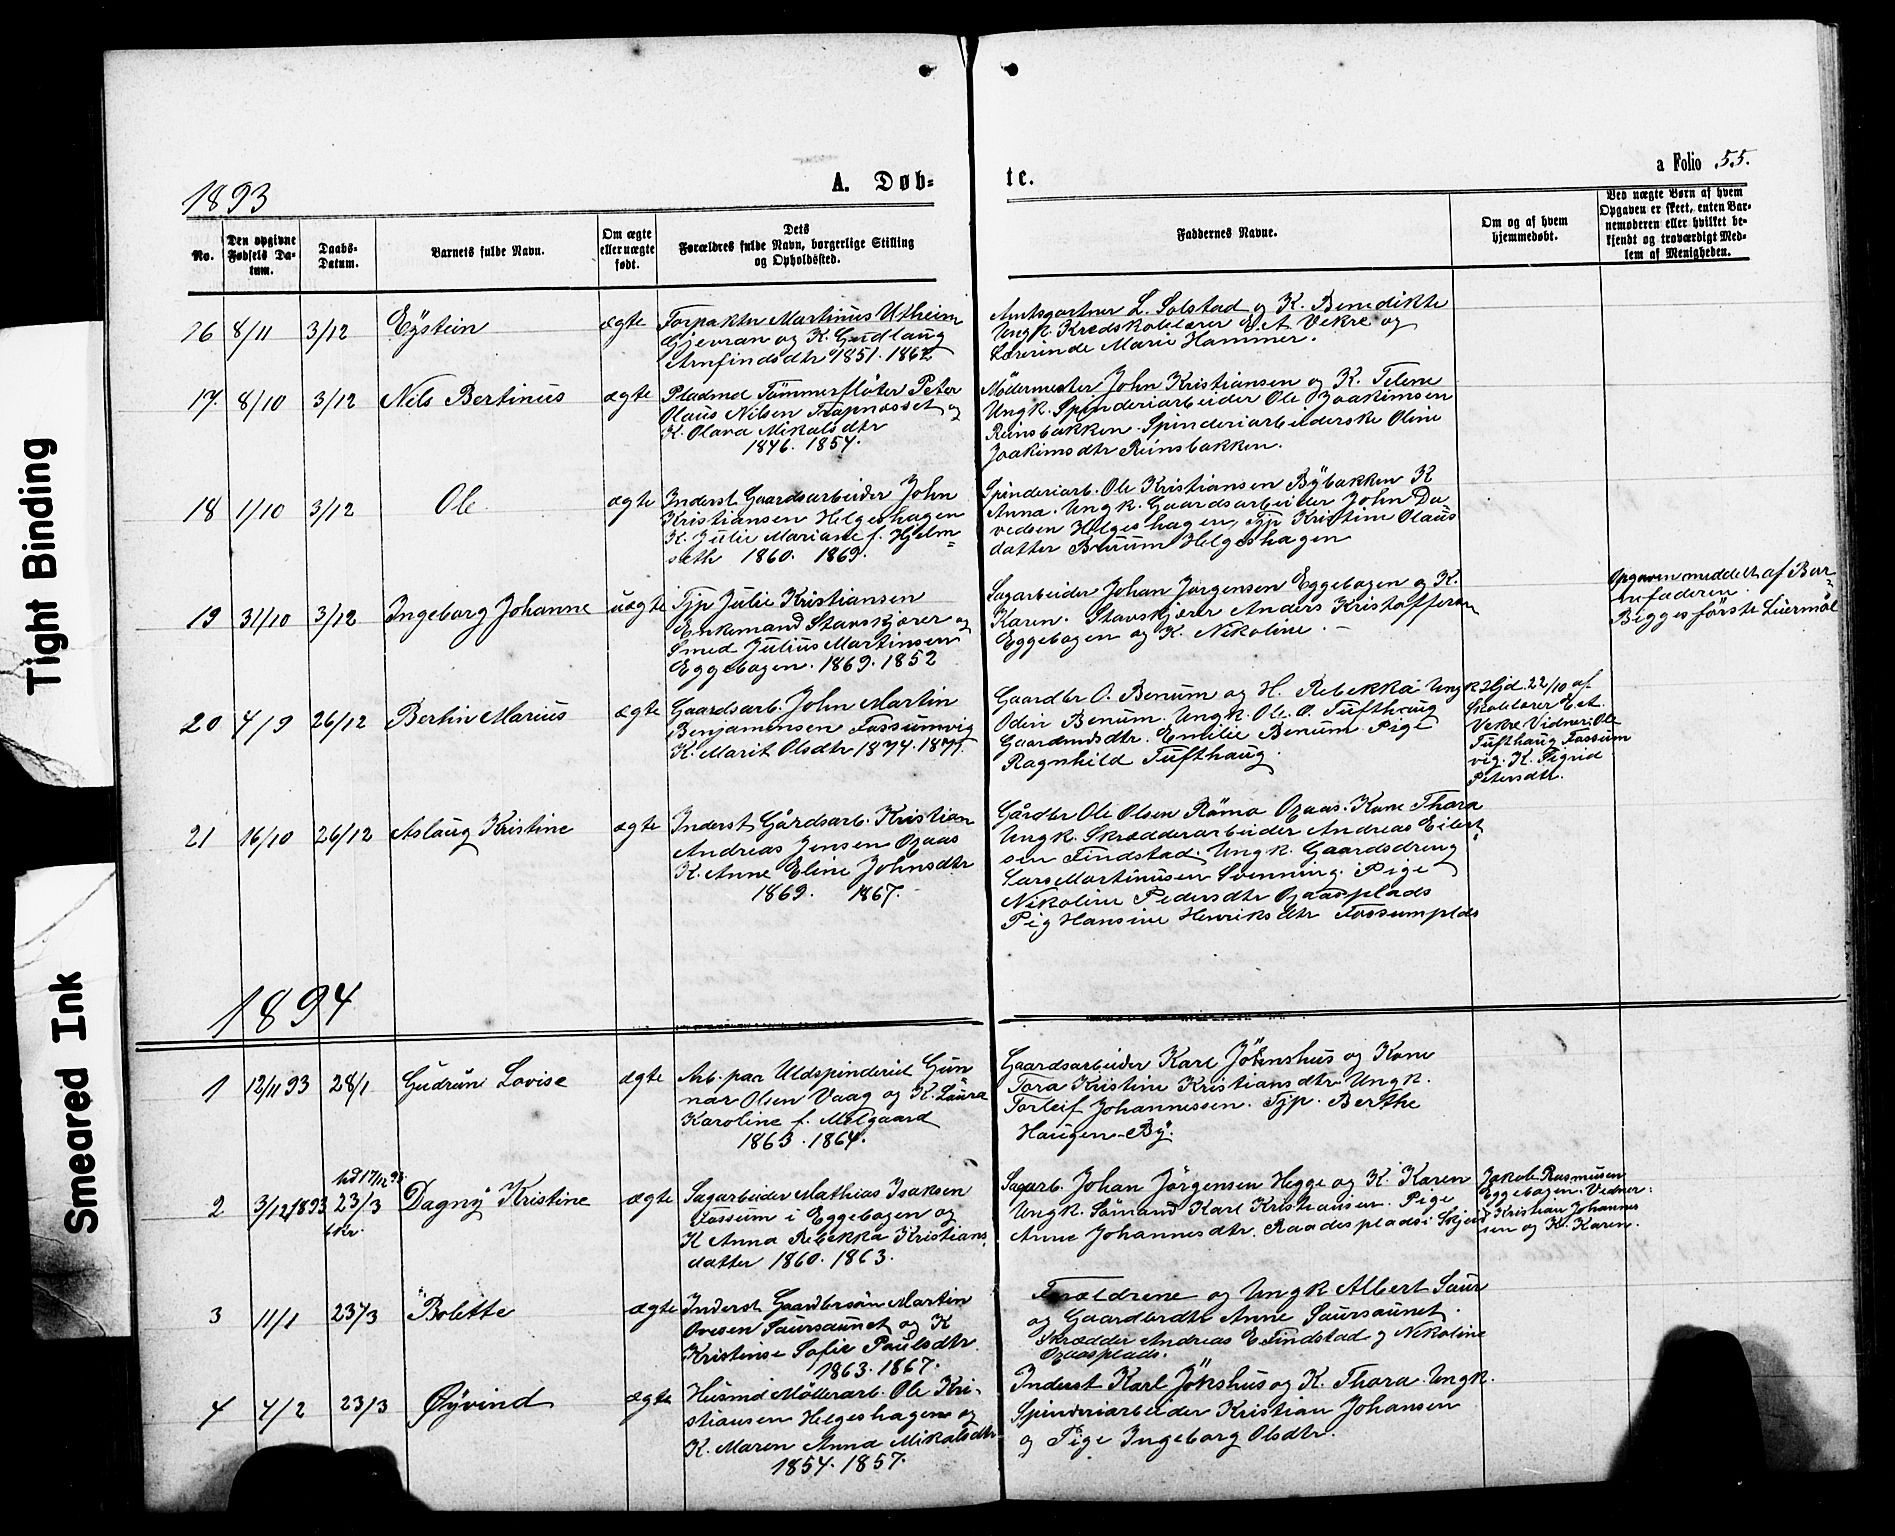 Tight Binding
Smeared Ink
1893
A. Døb-
te.
a Folio 55.
No.
Den opgivne
Fødsels Da-
tum.
Daabs-
Datum.
Barnets fulde Navn.
Om ægte
eller uægte
født.
Dets
Forældres fulde Navn, borgerlige Stilling
og Opholdssted.
Faddernes Navne.
Om og af hvem
hjemmedøbt.
Ved uægte Børn af hvem
Opgaven er skeet, enten Bar-
nemoderen eller hvilket be-
kjendt og troværdigt Med-
lem af Menigheden.
16 8/11 3/12 Eÿstein ægte
Forpakter Martinus Utheim
Gjevran og K. Gudlaug
Arnfindsdtr 1851. 1862
Amtsgartner L. Solstad og K. Benedikte
Ungk. Kredsskolelærer E. A. Vekre og
Lærerinde Marie Hammer.
17. 8/10 3/12 Nils Bertinus ægte
Pladmd Tömmerflöter Peter
Olaus Nilsen og
K. Olava Mikalsdtr
1846. 1854.
Mödermester John Kristiansen og K. Telene
Ungk. Spinderiarbeider Ole Joakimsen
Reinsbakken. Spinderiarbeiderske Oline
Joakimsdtr Reinsbakken.
18 1/10 3/12 Ole ægte
Inderst Gaardsarbeider John
Kristiansen Helgeshagen
K. Julie Mariane f. Hjelm-
seth 1860. 1869.
Spinderiarb. Ole Kristiansen Bÿbakken K
Anna. Ungk. Gaardsarbeider John Da
vedsen Helgeshagen, Tjp Kristine Olaus
datter Helgeshagen
19 31/10 3/12 Ingeborg Johanne uægte
Tjp Julie Kristiansen
Enkemand Stavskjærer og
Smed Julius Martinsen
Eggebogen. 1869. 1852
Sagarbeider Johan Jørgensen Eggebogen og K.
Karen. Stavskjærer Anders Kristoffersen
Eggebogen og K. Nikoline. -
Opgaven meddelt af Bar-
nefaderen.
Begges første Leiermål
20 4/9 26/12 Bertin Marius ægte
Gaardsarb. John Martin
Benjaminsen Fossumvig
K. Marit Olsdtr 1874. 1871.
Gaardbr O. Benum og H. Rebekka Ungk
Odin Benum. Ungk. Ole O. Tufthaug
Gaardmdsdtr. Emilie Benum. Pige
Ragnhild Tufthaug.
Hjd. 22/10 af
Skolelærer E. A.
Vekre Vidner: Ole
Tufthaug Fossum
vig. K. Sigrid
Petersdtr.
21 16/10 26/12 Aslaug Kristine ægte
Inderst Gårdsarb. Kristian
Andreas Jensen Opaas
K. Anne Eline Johnsdtr
1869. 1867.
Gårdbr Ole Olsen Römo Opaas. Kone Thora
Ungk. Skrædderarbeider Andreas Eilert
sen Findstad. Ungk. Gaardsdreng
Lars Martinusen Svenning. Pige
Nikoline Pedersdtr Opaasplads
Pig Hansine Henriksdtr Fossumplads
1894
1 12/11 93 28/1 Gudrun Lovise ægte
Arb. paa Uldspinderiet Gun
nar Olsen Vaag og K. Laura
Karoline f. Melgaard
1863. 1864.
Gaardsarbeider Karl Jöksnhus og Kone
Tora Kristine Kristiansdtr. Ungk.
Torleif Johannessen. Tjp. Berthe
Haugen - Bÿ.
2 3/12 1893 hd 17/12 93
23/3
bkr. Dagnÿ Kristine ægte
Sagarbeider Mathias Isaksen
Fossum i Eggebogen og
K Anna Rebekka Kristians
datter 1860. 1863.
Sagarb. Johan Jörgensen Hegge og K. Karen
Ungk. Sömand Karl Kristiansen. Pige
Anne Johannesdtr. Raadesplads i Skjerd
Jakob Rasmusen
Eggebogen. Vidner:
Kristian Johannes
sen og K. Karen.
3 11/1 23/3 Bolette ægte
Inderst Gaardbrsön Martin
Ovesen Saursaunet og K
Kristense Sofie Paulsdtr.
1863. 1867.
Forældrene og Ungk Albert Saur
og Gaardbrdtr Anne Saursaunet.
Skrædder Andreas E. Findstad og Nikoline
Opaasplads.
4 4/2 23/3 Øÿvind ægte
Husmd Möllerarb. Ole Kri-
stiansen Helgeshagen og
K. Maren Anna Mikalsdtr
1854. 1857.
Inderst Karl Jökshus og K. Thora. Ungk.
Spinderiarbeider Kristian Johansen
og Pige Ingeborg Olsdtr.